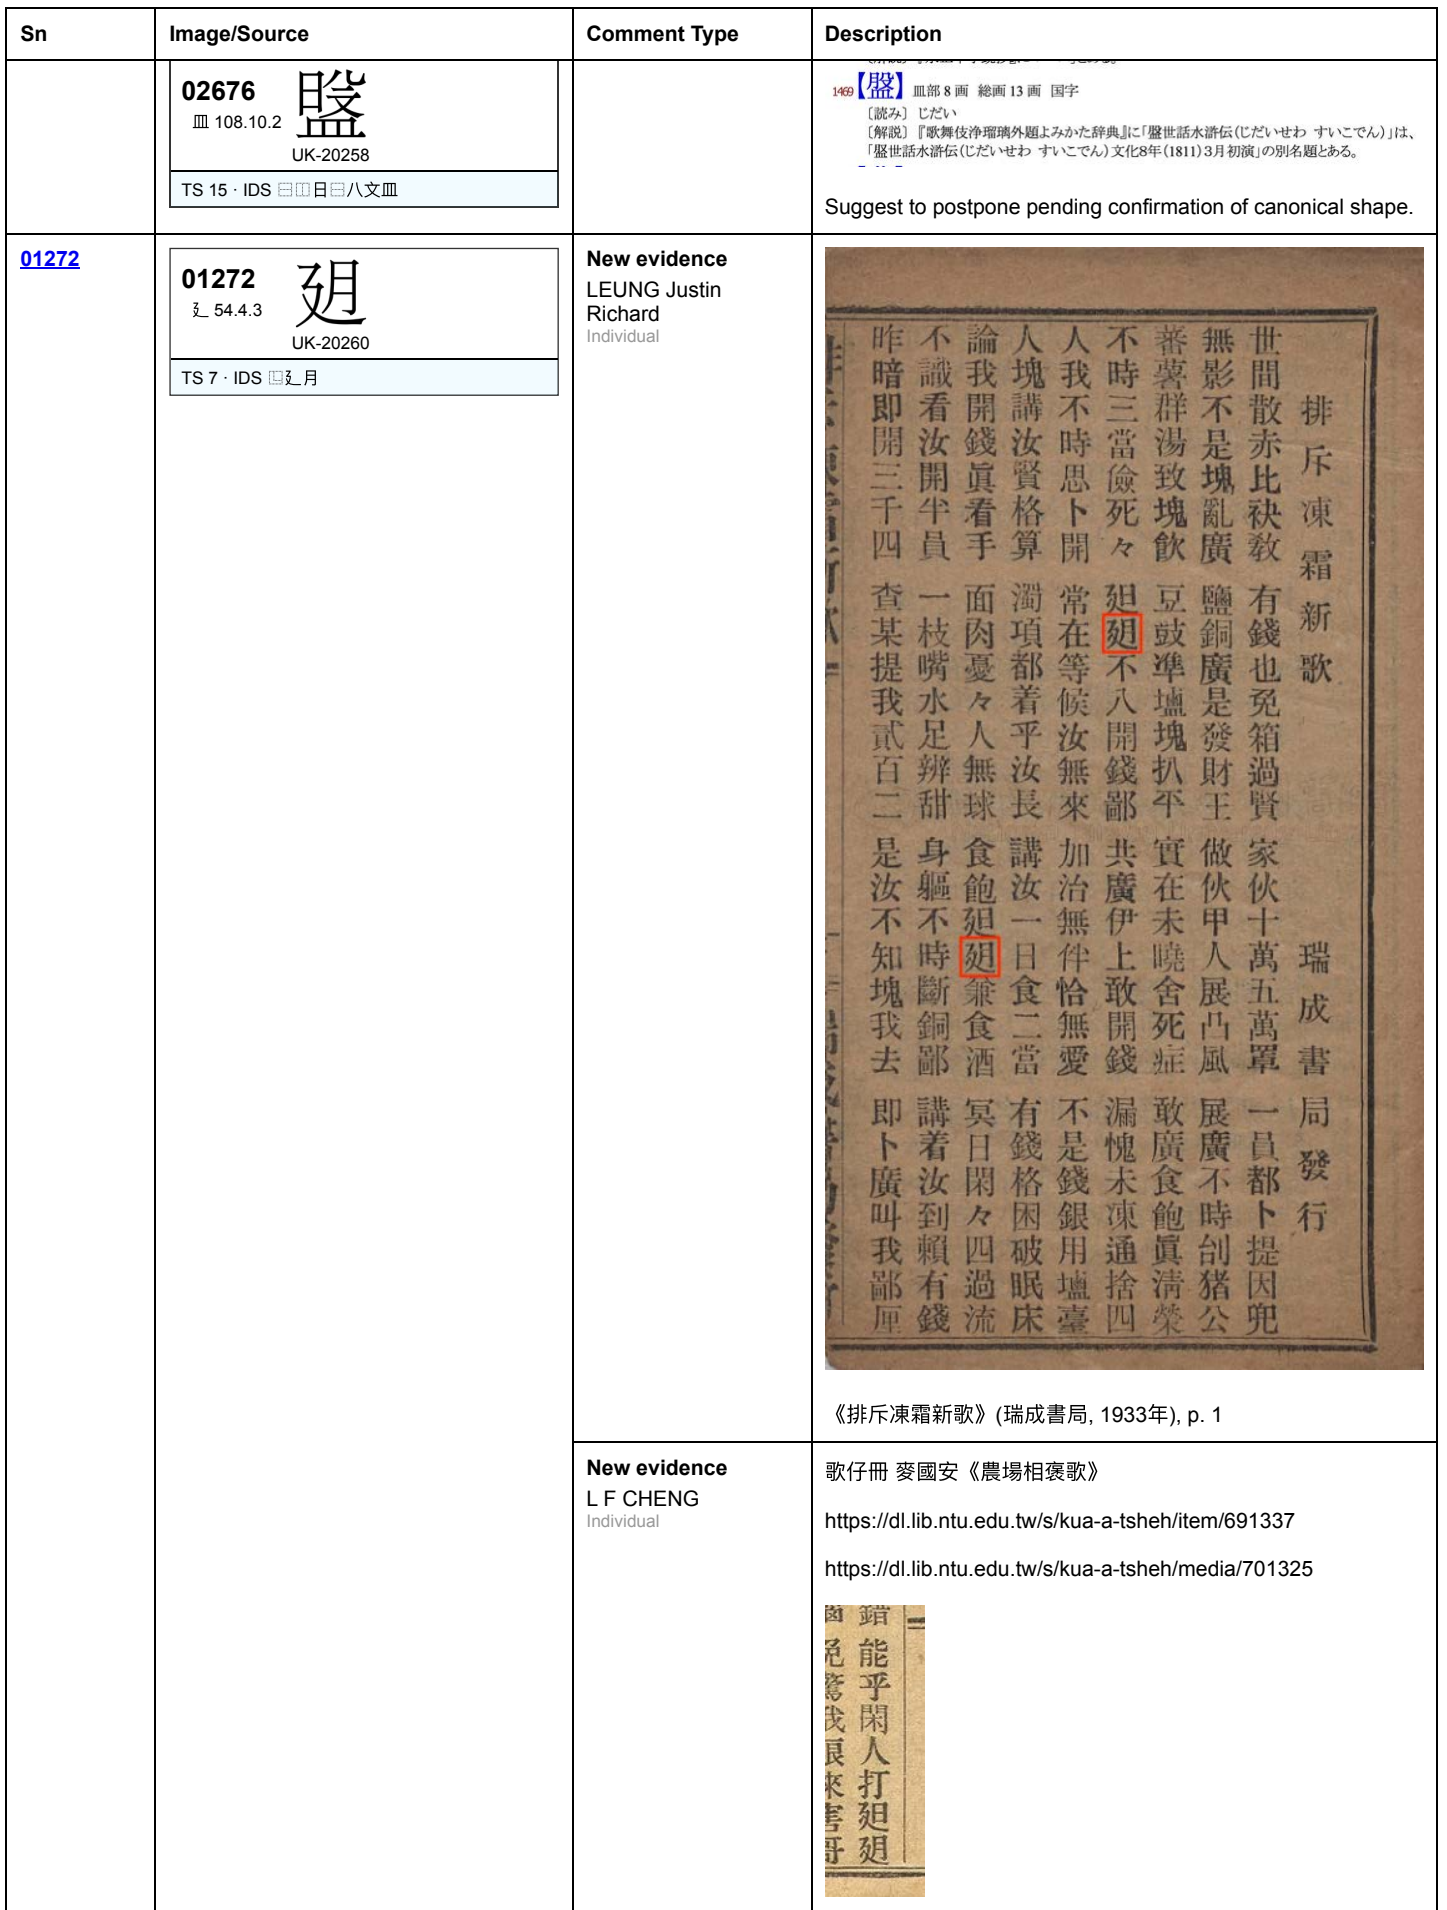 Sn Image/Source Comment Type Description
02676
皿 108.10.2
UK-20258
TS 15 · IDS ⿱⿰日⿱八文皿
1469 皿部 8 画 総画 13 画 国字
〔読み〕じだい
Suggest to postpone pending confirmation of canonical shape.
01272
01272
廴 54.4.3
UK-20260
TS 7 · IDS ⿺廴月
New evidence
LEUNG Justin
Richard
Individual
排斥凍霜新歌 瑞成書局發行
世間散赤比袂敎 有錢也免箱過賢 家伙十萬五萬罩 一員都卜提因兜
無影不是塊亂廣 鹽銅廣是發財王 做伙甲人展凸風 展廣不時刣猪公
蕃薯群湯致塊飲 豆豉準塩塊扒平 實在未曉舍死症 敢廣食飽眞淸榮
不時三當儉死々 不八開錢鄙 共廣伊上敢開錢 漏愧未凍通捨四
人我不時思卜開 常在等候汝無來 加治無伴恰無愛 不是錢銀用塩臺
人塊講汝賢格算 濁項都着乎汝長 講汝一日食二當 有錢格困破眠床
論我開錢眞看手 面肉憂々人無球 食飽 兼食酒 冥日閑々四過流
不識看汝開半員 一枝嘴水足辨甜 身軀不時斷銅鄙 講着汝到賴有錢
昨暗即開三千四 查某提我貳百二 是汝不知塊我去 即卜廣叫我鄙厘
《排斥凍霜新歌》(瑞成書局, 1933年), p. 1
New evidence
L F CHENG
Individual
歌仔冊 麥國安《農場相褒歌》
https://dl.lib.ntu.edu.tw/s/kua-a-tsheh/item/691337
https://dl.lib.ntu.edu.tw/s/kua-a-tsheh/media/701325
錯 能乎閑人打